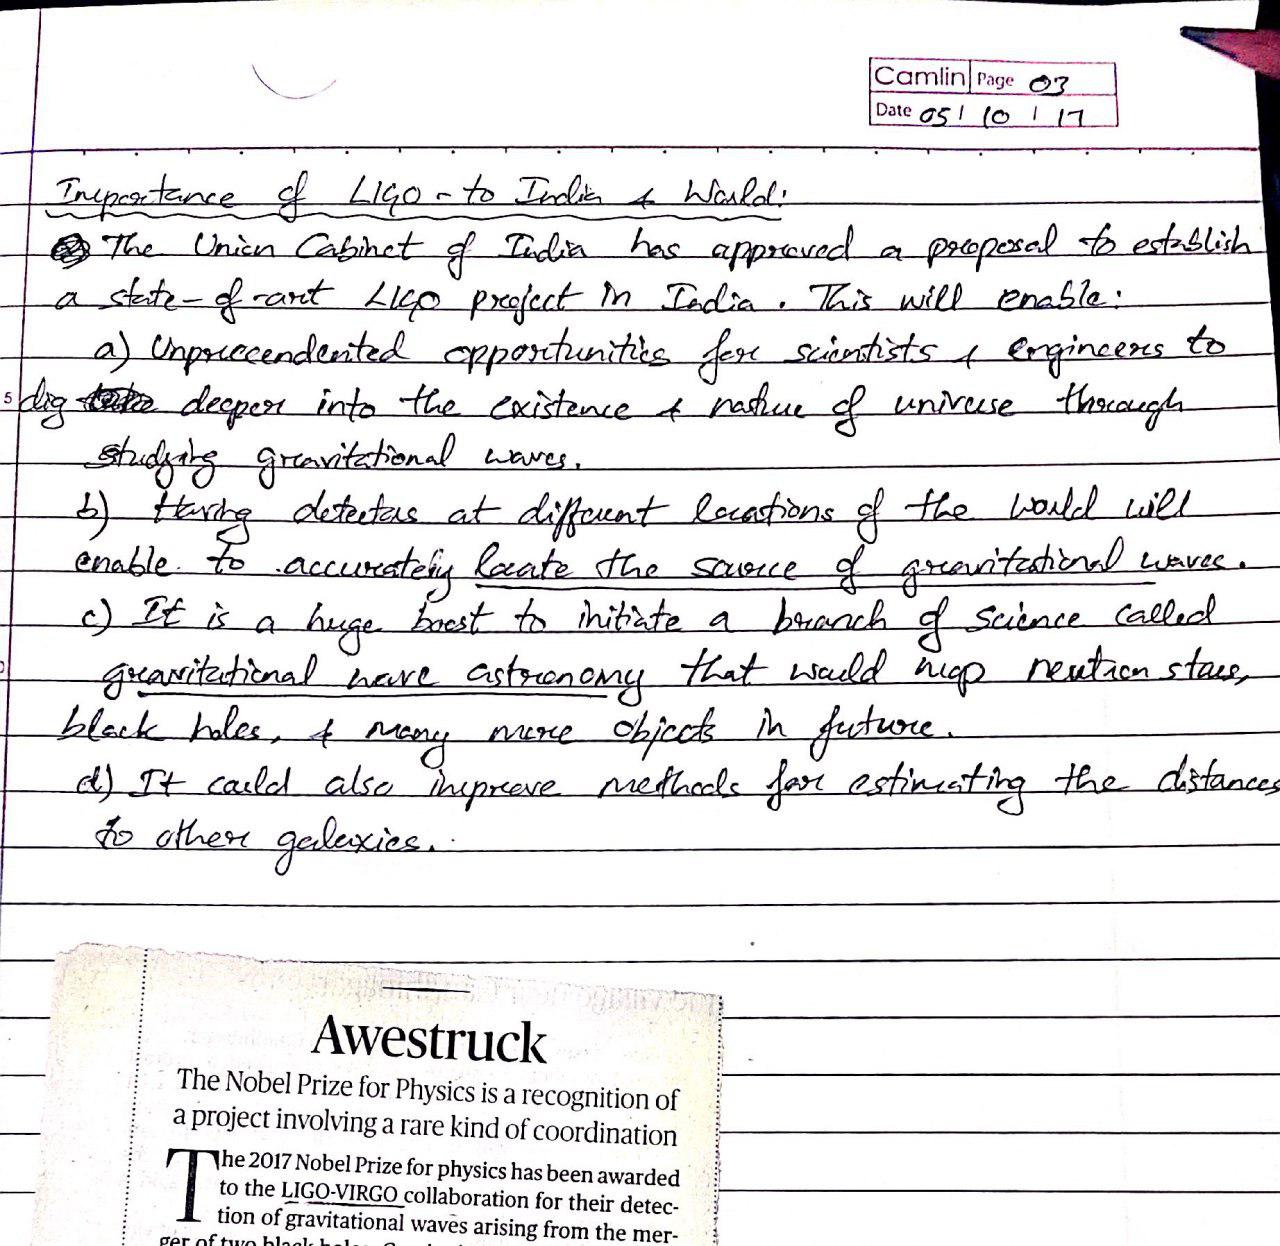 Camlin Page 03
Date 05 / 10 / 17
Importance of LIGO - to India & World:
The Union Cabinet of India has approved a proposal to establish
a state-of-art LIGO project in India. This will enable:
a) Unpreccendented opportunities for scientists & engineers to
5 dig deeper into the existence & nature of universe through
studying gravitational waves.
b) Having detectors at different locations of the world will
enable to accurately locate the source of gravitational waves.
c) It is a huge boost to initiate a branch of Science called
gravitational wave astronomy that would map neutron stars,
black holes, & many more objects in future.
d) It could also improve methods for estimating the distances
to other galaxies.
Awestruck
The Nobel Prize for Physics is a recognition of
a project involving a rare kind of coordination
The 2017 Nobel Prize for physics has been awarded
to the LIGO-VIRGO collaboration for their detec-
tion of gravitational waves arising from the mer-
ger of two black